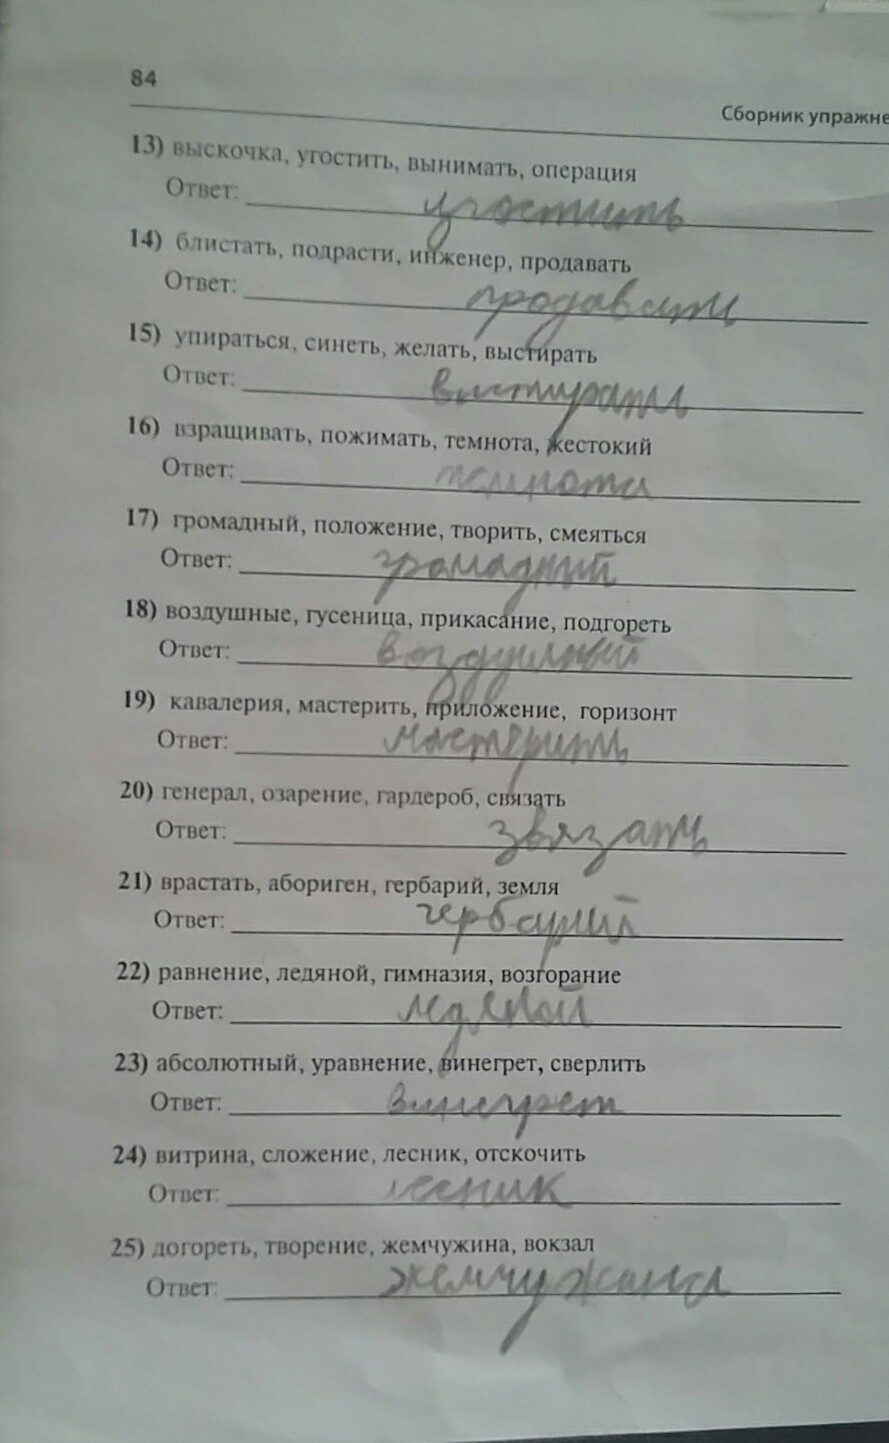 84
Сборник упражне
13) выскочка, угостить, вынимать, операция
Ответ: угостить
14) блистать, подрасти, инженер, продавать
Ответ: продавать
15) упираться, синеть, желать, выстирать
Ответ: выстирать
16) взращивать, пожимать, темнота, жестокий
Ответ: темнота
17) громадный, положение, творить, смеяться
Ответ: громадный
18) воздушные, гусеница, прикасание, подгореть
Ответ: воздушный
19) кавалерия, мастерить, приложение, горизонт
Ответ: мастерить
20) генерал, озарение, гардероб, связать
Ответ: звязать
21) врастать, абориген, гербарий, земля
Ответ: гербарий
22) равнение, ледяной, гимназия, возгорание
Ответ: ледяной
23) абсолютный, уравнение, винегрет, сверлить
Ответ: винегрет
24) витрина, сложение, лесник, отскочить
Ответ: лесник
25) догореть, творение, жемчужина, вокзал
Ответ: жемчужина